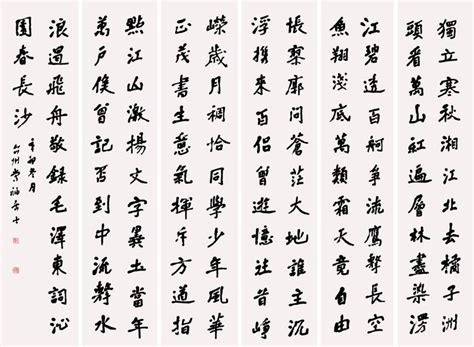 獨立寒秋湘江北去橘子洲
頭看萬山紅遍層林盡染漫
江碧透百舸爭流鷹擊長空
魚翔淺底萬類霜天竟自由
悵寥廓問蒼茫大地誰主沉
浮攜來百侶曾遊憶往昔崢
嶸歲月稠恰同學少年風華
正茂書生意氣揮斥方遒指
點江山激揚文字糞土當年
萬戶侯曾記否到中流擊水
浪遏飛舟敬錄毛澤東詞沁
園春長沙
辛卯冬月
台州